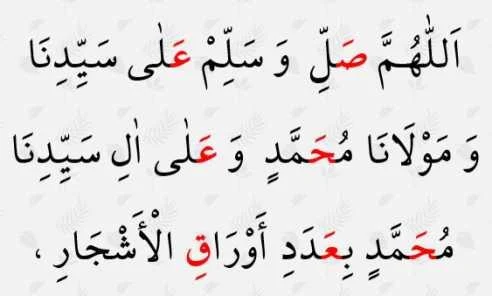 اَللّٰهُمَّ صَلِّ وَ سَلِّمْ عَلٰى سَيِّدِنَا
وَ مَوْلَانَا مُحَمَّدٍ وَ عَلٰى اٰلِ سَيِّدِنَا
مُحَمَّدٍ بِعَدَدِ أَوْرَاقِ الْأَشْجَارِ ،